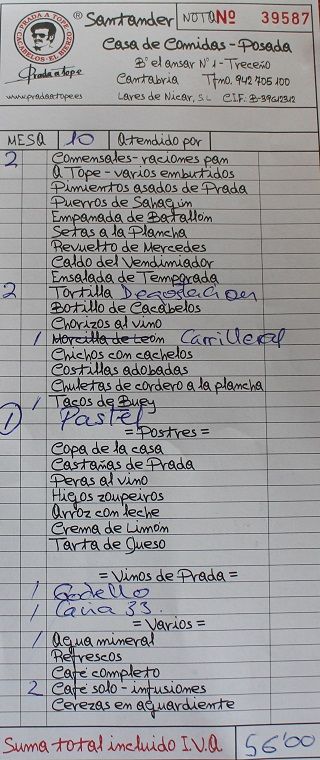 PRADA A TOPE
CACABELOS·EL BIERZO
Prada a tope
www.pradaatope.es
® Santander NOTA Nº 39587
Casa de Comidas - Posada
Bº el ansar Nº 1 - Treceño
Cantabria Tfno. 942 705 100
Lares de Nicar, S.L C.I.F. B-39612312
MESA 10 Atendido por
2 Comensales - raciones pan
A Tope - varios embutidos
Pimientos asados de Prada
Puerros de Sahagún
Empanada de Batallón
Setas a la Plancha
Revuelto de Mercedes
Caldo del Vendimiador
Ensalada de Temporada
2 Tortilla Degustacion
Botillo de Cacabelos
Chorizos al vino
1 Morcilla de León Carrilleral
Chichos con cachelos
Costillas adobadas
Chuletas de cordero a la plancha
1 Tacos de Buey
1 Pastel
= Postres =
Copa de la casa
Castañas de Prada
Peras al vino
Higos zoupeiros
Arroz con leche
Crema de Limón
Tarta de Queso
= Vinos de Prada =
1 Godello
1 Caña 33.
= Varios =
1 Agua mineral
Refrescos
Café completo
2 Café solo - infusiones
Cerezas en aguardiente
Suma total incluido I.V.A 56'00